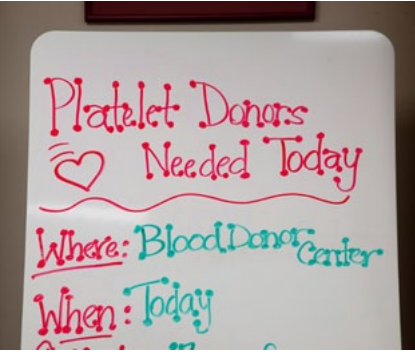 Platelet Donors
Needed Today
Where: Blood Donor Center
When: Today